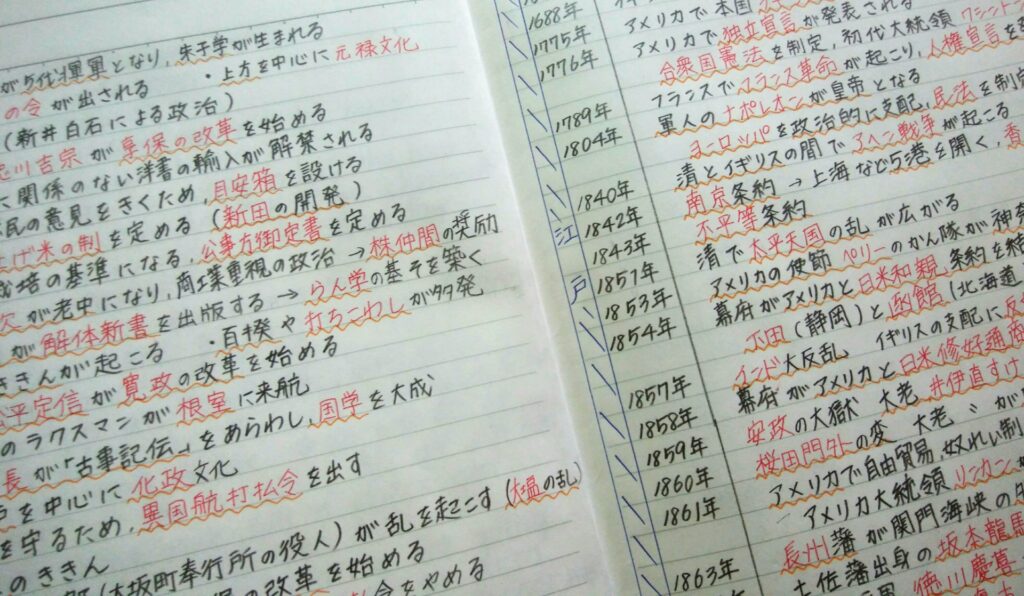 が5代将軍となり、朱子学が生まれる
の令が出される ・上方を中心に元禄文化
(新井白石による政治)
徳川吉宗が享保の改革を始める
に関係のない洋書の輸入が解禁される
民の意見をきくため、目安箱を設ける
上げ米の制を定める (新田の開発)
裁培の基準になる、公事方御定書を定める
が老中になり、商工業重視の政治 → 株仲間の奨励
が解体新書を出版する → らん学の基そを築く
ききんが起こる ・百揆や打ちこわしが多発
松平定信が寛政の改革を始める
のラクスマンが根室に来航
長が「古事記伝」をあらわし、国学を大成
を中心に化政文化
を守るため、異国航打払令を出す
のききん
(大坂町奉行所の役人)が乱を起こす (大塩の乱)
の改革を始める
令をやめる
江戸
1688年
1775年 アメリカで本国
1776年 アメリカで独立宣言が発表される
合衆国憲法を制定、初代大統領 ワシントン
1789年 フランスでフランス革命が起こり、人権宣言を
1804年 軍人のナポレオンが皇帝となる
ヨーロッパを政治的に支配、民法を制定
1840年 清とイギリスの間でアヘン戦争が起こる
1842年 南京条約 → 上海など5港を開く、香
1843年 不平等条約
1851年 清で太平天国の乱が広がる
1853年 アメリカの使節ペリーのかん隊が神奈
1854年 幕府がアメリカと日米和親条約を結
下田(静岡)と函館(北海道
1857年 インド大反乱 イギリスの支配に反
1858年 幕府がアメリカと日米修好通商
1859年 安政の大獄 大老 井伊直すけ
1860年 桜田門外の変 大老〃が
1861年 アメリカで自由貿易、奴れい制
アメリカ大統領 リンカン
1863年 長州藩が関門海峡の
土佐藩出身の坂本龍馬
徳川慶喜